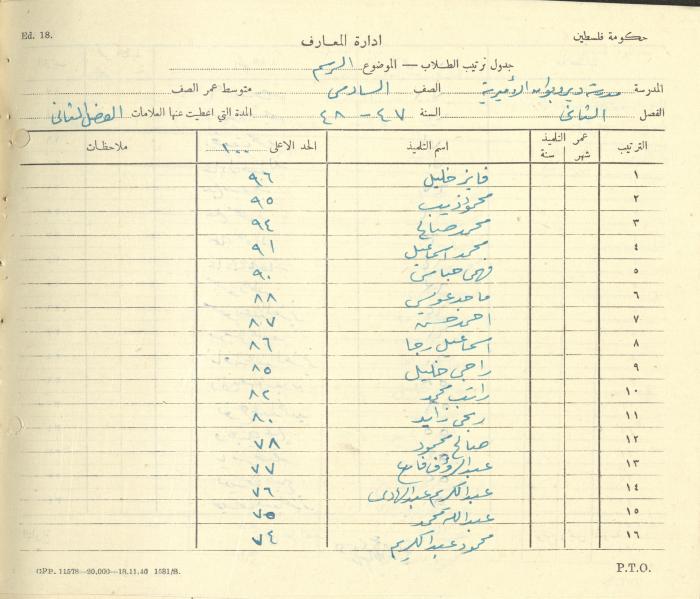 Ed. 18.
حكومة فلسطين
ادارة المعارف
جدول ترتيب الطلاب — الموضوع الرسم
المدرسة مدرسة ديروبوان الأميرية الصف السادس متوسط عمر الصف
الفصل الثاني السنة ٤٧ - ٤٨ المدة التي اعطيت عنها العلامات الفصل الثاني
الترتيب عمر التلميذ شهر سنة اسم التلميذ الحد الاعلى ١٠٠ ملاحظات
١ فايز خليل ٩٦
٢ محمود ذيب ٩٥
٣ محمد صالح ٩٤
٤ محمد اسماعيل ٩١
٥ فهمي عباس ٩٠
٦ ماجد عونس ٨٨
٧ احمد حسن ٨٧
٨ اسماعيل رجا ٨٦
٩ راجي خليل ٨٥
١٠ راتب محمد ٨٢
١١ ربحي زايد ٨٠
١٢ صالح محمود ٧٨
١٣ عبد الرؤوف ٧٧
١٤ عبد الكريم عبد الهادي ٧٦
١٥ عبد الله محمد ٧٥
١٦ محمود عبد الكريم ٧٤
GPP. 11578—20,000—18.11.46 1581/S.
P.T.O.